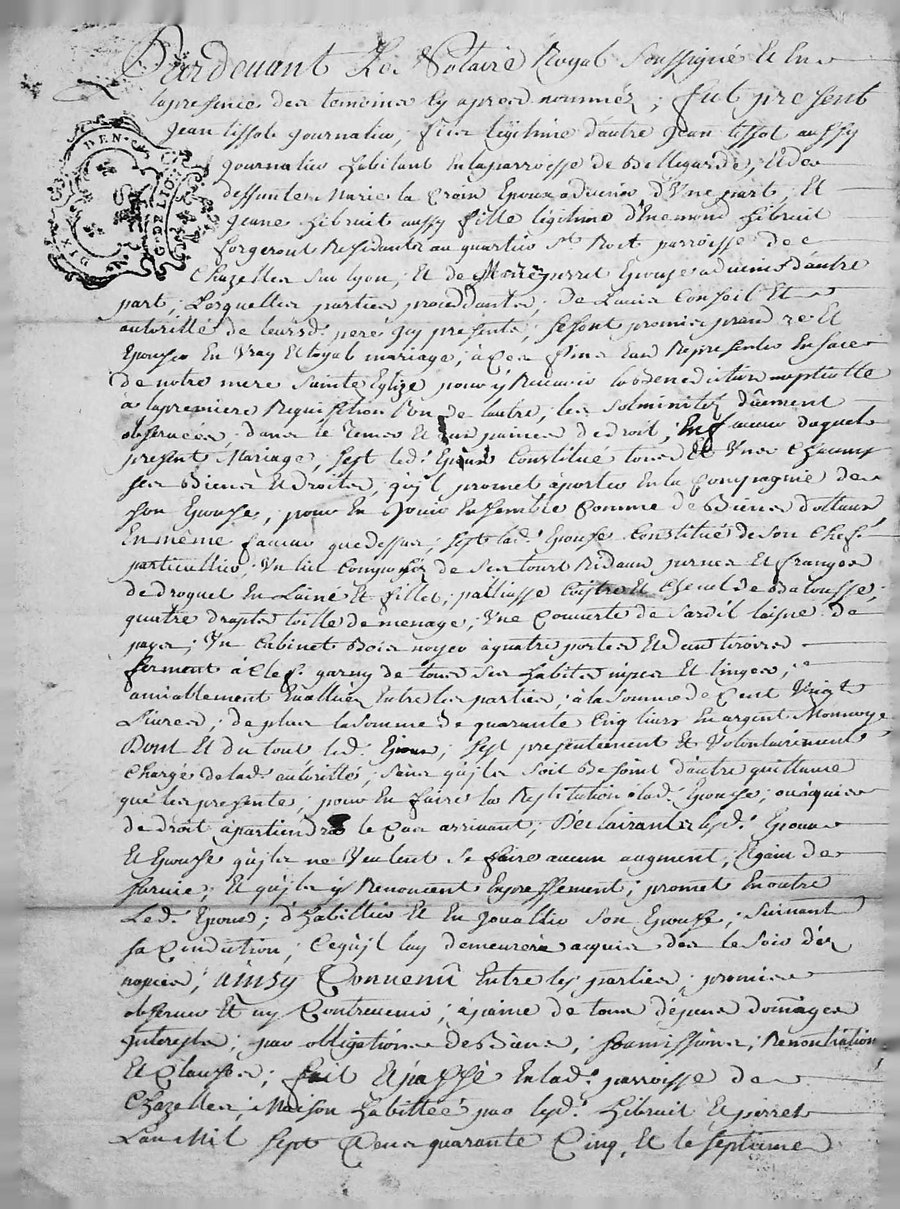 Pardevant Le Notaire Royal soussigné Et En
la presence des temoins cy apres nommez; fut present
Jean tissot journalier, fils légitime d'autre Jean tissot aussy
DIX DEN.
G. DE LION
journalier habitant En la parroisse de Bellegarde, Et de
deffunte Marie la Croix Epoux advenir d'Une part; Et
Jeane hibruit aussy fille légitime d'Enemond hibruit
forgeront Residante au quartier St Roct parroisse de
Chazelles sur lyon; Et de perret Epouse advenir d'autre
part; Lesquelles parties proceddantes; de Lavis Conseil Et
autorité de leursd. pere jcy presents; se sont promis prendre Et
Epouser En Vray Et loyal mariage; à Ces fins Eux Representer En face
de notre mere Sainte Eglize pour y Recevoir la benediction nuptialle
à la premiere Requisition l'Un de lautre, les solmnitez düement
observées dans le Tems Et aux paines de droit; En faveur duquel
present Mariage; s'est led. Epoux Constitué tous Et Uns Chacuns
ses Biens Et droits, qu'jl promet aporter En la Compagnie de
son Epouse, pour En Jouir Ensemble Comme de Biens dottaux
En même faveur que dessus; s'est lad. Epouse Constitué de son Chef
particullier, Un lit Composé de ses tour Rideaux jurnes Et franges
de droguet En Laine Et fillet; palliasse Coitre Et Chevet de Balousse;
quatre draps toille de menage; Une Couverte de Sardil laisne de
pays; Un Cabinet Bois noyer à quatre portes Et deux tiroirs
ferment à Clef. garny de tous ses habits nipes Et linges;
amiablement Evallués Entre les parties; à la somme de Cent Vingt
Livres; de plus la somme de quarante Cinq livres En argent Monnoye
Dont Et du tout led. Epoux; s'est presentement Et Volontairement
Chargé de lad. authorité; sans qu'jls soit Besoint d'autre quittance
que les presentes; pour En faire la Restitution à lad. Epouse; ou à qui
de droit apartiendra le Cas arrivant; Declairants lesd. Epoux
Et Epouse qu'jls ne Veulent se faire aucun augment; Et gain de
survie; Et qu'jls y Renoncent Expressement; promet En outre
Led. Epoux; d'habillier Et En Jouallier son Epouse, suivant
sa Condition; Ce qu'jl luy demeurera acquis des le soir des
nopces; ainsy Convenû Entre les parties; promis
observer Et ny Contrevenir; à paine de tous dépens domages
Interests; par obligations de Biens; soumissions; Renontiation
Et Clauses; fait Et passé En lad. parroisse de
Chazelles; Maison habittée par lesd. hibruit Et perret
Lan Mil sept Cens quarante Cinq, Et le septieme